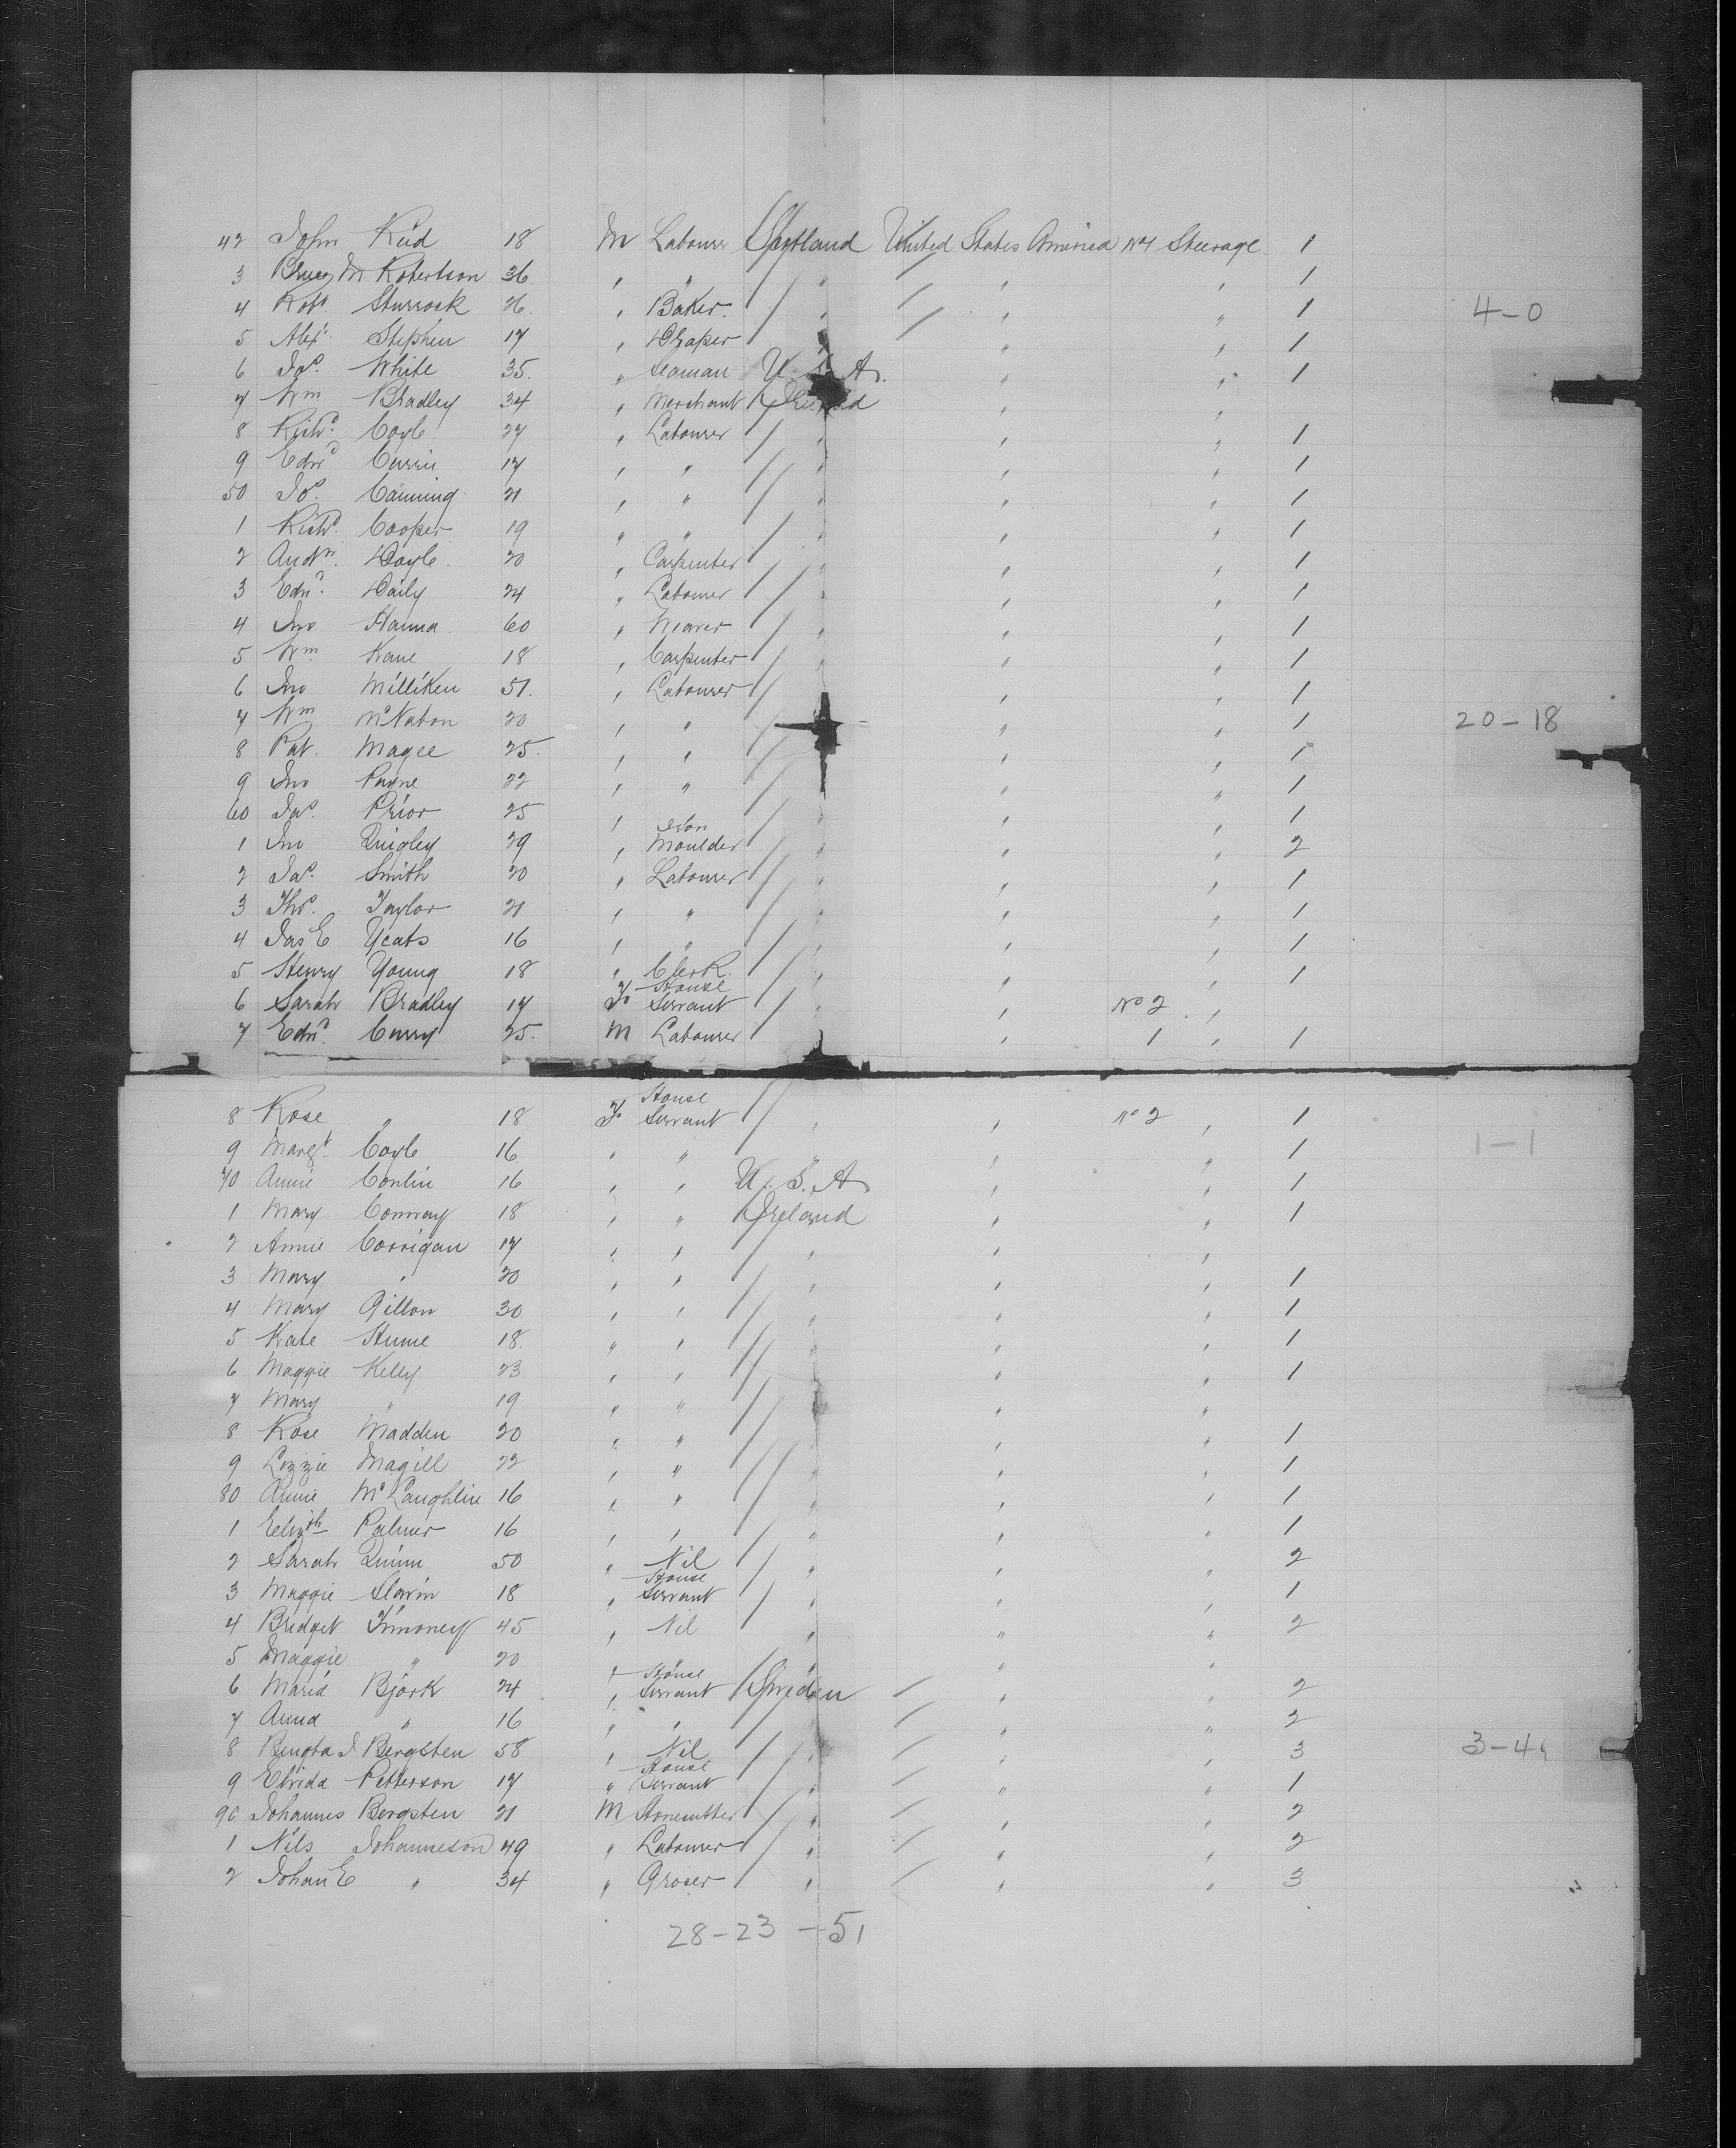 42 John Reid 18 M Labourer Scotland United States America No 1 Steerage 1
3 Bruce M Robertson 36 " " " " " 1
4 Robt. Sturrock 26 " Baker " " " 1
4-0
5 Alexr. Stephen 17 " Draper " " " 1
6 Jas. White 35 " Seaman U.S.A. " " 1
7 Wm Bradley 34 " Merchant Ireland " "
8 Richd. Coyle 27 " Labourer " " " 1
9 Edwd Currie 17 " " " " " 1
50 Jos. Canning 21 " " " " " 1
1 Richd. Cooper 19 " " " " " 1
2 Andw. Doyle 20 " Carpenter " " " 1
3 Edwd. Daily 24 " Labourer " " " 1
4 Jno Hanna 60 " Weaver " " " 1
5 Wm Kane 18 " Carpenter " " " 1
6 Jno Milliken 51 " Labourer " " " 1
7 Wm 20 " " " " " 1
20-18
8 Pat. Magee 25 " " " " " 1
9 Jno Payne 22 " " " " " 1
60 Jas. Prior 25 " " " " 1
1 Jno Quigley 29 " Iron Moulder " " " 2
2 Jas. Smith 20 " Labourer " " " 1
3 Thos. Taylor 21 " " " " " 1
4 Jas E Yeats 16 " " " " " 1
5 Henry Young 18 " Clerk " " " 1
6 Sarah Bradley 17 F House Servant " " No 2 "
7 Edwd. Curry 25 M Labourer " 1 " 1
8 Rose " 18 F House Servant " " No 2 " 1
9 Margt. Coyle 16 " " " " " 1
1-1
70 Annie Conlin 16 " " U.S.A " " 1
1 Mary Conway 18 " " Ireland " " 1
2 Annie Corrigan 17 " " " " "
3 Mary " 20 " " " " " 1
4 Mary Gillon 30 " " " " " 1
5 Kate Hume 18 " " " " " 1
6 Maggie Kelly 23 " " " " " 1
7 Mary " 19 " " " " "
8 Rose Madden 20 " " " " " 1
9 Lizzie Magill 22 " " " " " 1
80 Annie McLaughlin 16 " " " " " 1
1 Elizth Palmer 16 " " " " " 1
2 Sarah Quinn 50 " Nil " " " 2
3 Maggie Slavin 18 " House Servant " " " 1
4 Bridget Timoney 45 " Nil " " " 2
5 Maggie " 20 " " " "
6 Maria Björk 24 " House Servant Sweden " " 2
7 Anna " 16 " " " " " 2
8 Bengta J Bergsten 58 " Nil " " " 3
3-4
9 Elvida Petterson 17 " House Servant " " " 1
90 Johannes Bergsten 21 M Stonecutter " " " 2
1 Nils Johanneson 49 " Labourer " " " 2
2 Johan E " 34 " Grocer " " " 3
28-23-51